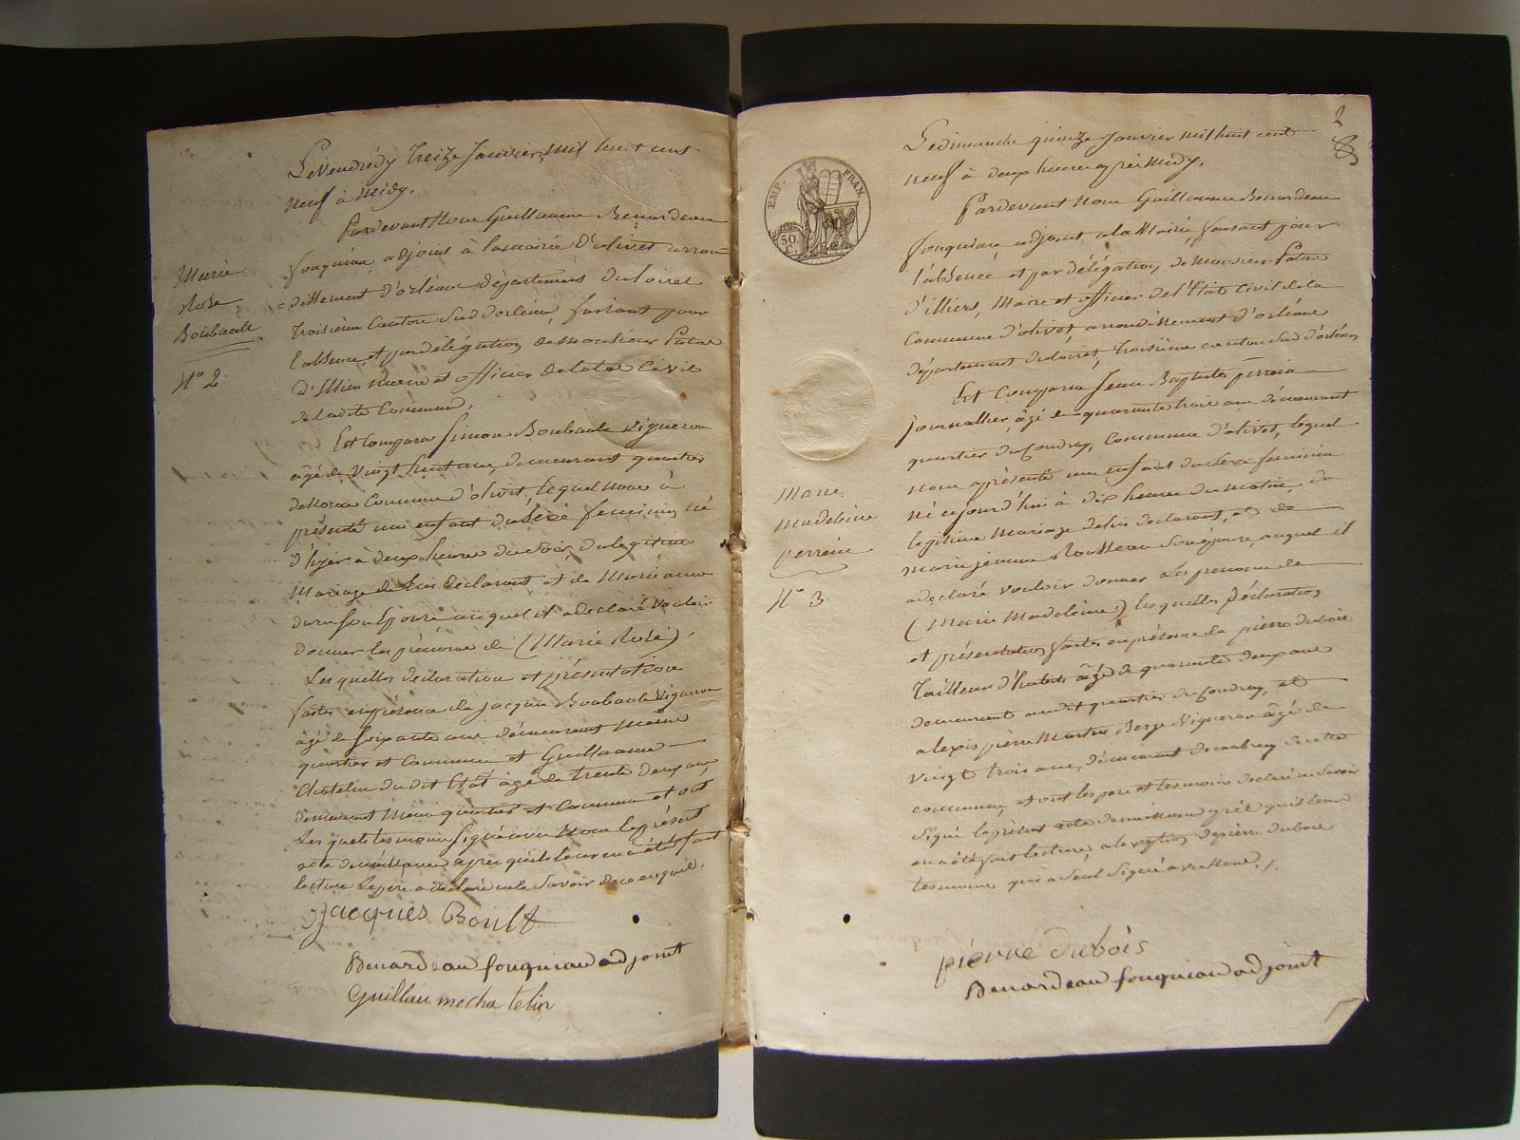 Marie
Rose
Boubault
N° 2
Le Vendrédy treize Janvier, mil huit cent
neuf à Midy.
Pardevant Nous Guillaume Benardeau
fouquiau adjoint à la mairie D'olivet arron
dissement d'orléans département du loiret
troisième Canton Sud d'orléans, faisant pour
l'absence et par délégation de Monsieur Patas
d'Illiers Maire et officier de letat Civil
de ladite Commune,
Est Comparu Simon Boubault Vigneron
âgé de Vingt huit ans demeurant quartier
de Commune d'olivet, lequel nous à
présenté une enfant du Sexe féminin né
d'hyer à deux heures du soir, du légitime
Mariage de Lui déclarant et de Marie anne
Son Epouse auquel il a déclaré vouloir
donner les prénoms de (Marie Rose).
Les quelles déclaration et présentation
faites en présence de Jacques Boubault Vigneron
âgé de soixante ans demeurant meme
quartier et Commune et Guillaume
Chatelin du dit Etat âgé de trente deux ans
demeurant Même quartier et Commune et ont
Les quels temoins Signé avec Nous le présent
acte de naissance après qu'il leur en a été fait
lecture Le père a déclaré ne le Savoir de ce enquis.
Jacques Boult
Benardeau fouquiau adjoint
Guillau me cha telin
2
EMP. FRAN.
50 C.
Marie
Madeleine
perrein
N° 3
Le dimanche quinze Janvier mil huit cent
neuf à deux heures après Midy.
Pardevant Nous Guillaume Benardeau
fouquiau adjoint à la Mairie, faisant pour
l'absence et par délégation de Monsieur Patas
d'illiers, Maire et officier de l'Etat Civil de la
Commune d'olivet, arrondissement d'orléans
département du loiret, troisième canton Sud d'orléans
Est Comparu Jean Baptiste perrein
journallier, âgé de quarante trois ans demeurant
quartier du Coudray, Commune d'olivet, lequel
nous a présenté une enfant du Sexe féminin
né ce jourd'hui à dix heures du matin, du
légitime Mariage de lui declarant, et de
Marie jeanne Rousseau Son epouse, auquel il
a déclaré vouloir donner les prenoms de
(Marie Madeleine) les quelles déclaration
et présentation faites en présence de pierre dubois
Tailleur d'habits âgé de quarante deux ans
demeurant au dit quartier du Coudray, et
alexis pierre Martin Vigneron âgé de
vingt trois ans, demeurant de cette
commune, et ont les pere et temoins declaré ne Savoir
Signé le présent acte de naissance après qu'il leur
en a été fait lecture, a la exception de pierre dubois
temoin qui a Seul Signé avec Nous./.
pierre dubois
Benardeau fouquiau adjoint